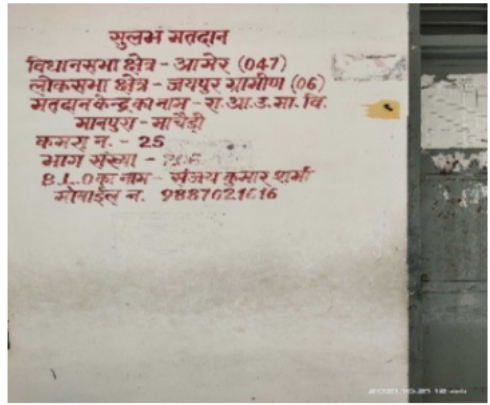 सुलभ मतदान
विधानसभा क्षेत्र - आमेर (047)
लोकसभा क्षेत्र - जयपुर ग्रामीण (06)
मतदान केन्द्र का नाम - रा.आ.उ.मा. वि.
मानपुरा - माचैड़ी
कमरा न. - 25
भाग संख्या -
B.L.O का नाम - संजय कुमार शर्मा
मोबाईल न. 9887021616